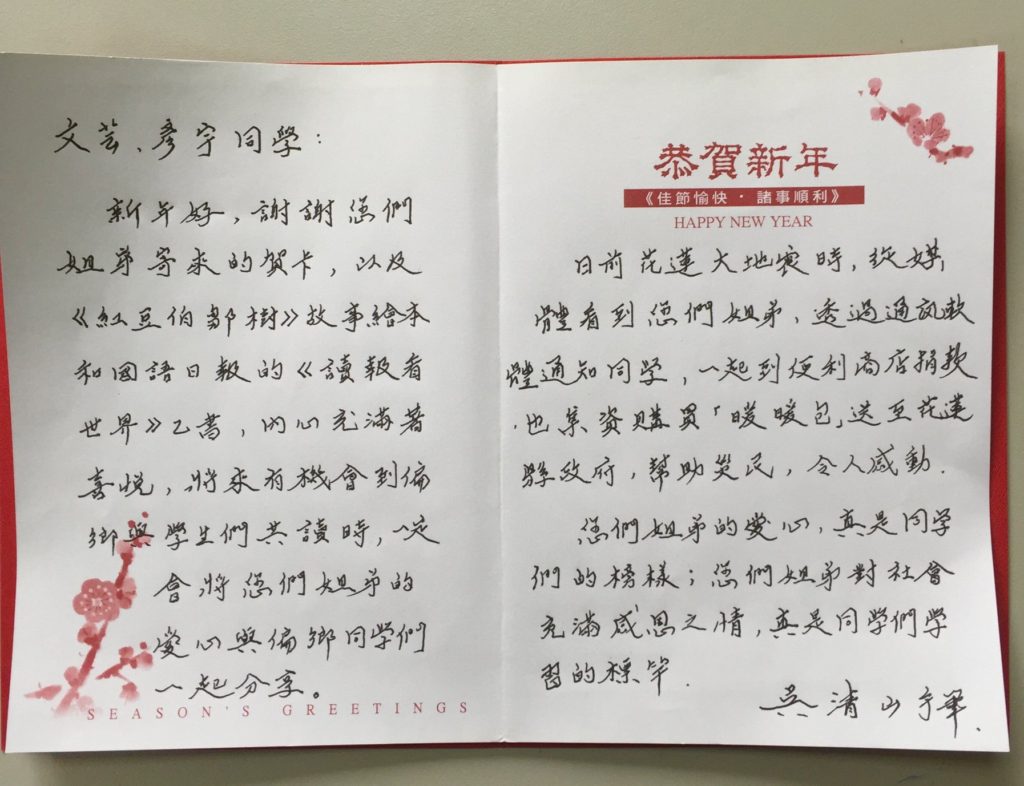 文芸、彥宇同學：
新年好，謝謝您們
姐弟寄來的賀卡，以及
《紅豆伯郵樹》故事繪本
和國語日報的《讀報看
世界》乙書，內心充滿著
喜悅，將來有機會到偏
鄉與學生們共讀時，一定
會將您們姐弟的
愛心與偏鄉同學們
一起分享。
SEASON'S GREETINGS
恭賀新年
《佳節愉快・諸事順利》
HAPPY NEW YEAR
日前花蓮大地震時，從媒
體看到您們姐弟，透過通訊軟
體通知同学，一起到便利商店捐款
也集資購買「暖暖包」送至花蓮
縣政府，幫助災民，令人感動.
您們姐弟的愛心，真是同学
們的榜樣；您們姐弟對社會
充滿感恩之情，真是同学們学
習的標竿.
吳清山 敬筆.